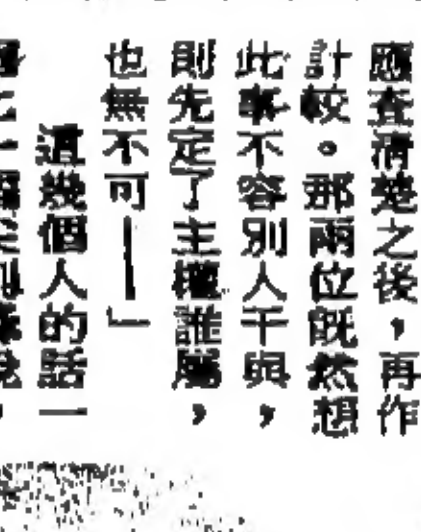 應查清楚之後，再作
計較。那兩位既然想
此事不容別人干與，
則先定了主權誰屬，
也無不可——」
這幾個人的話一